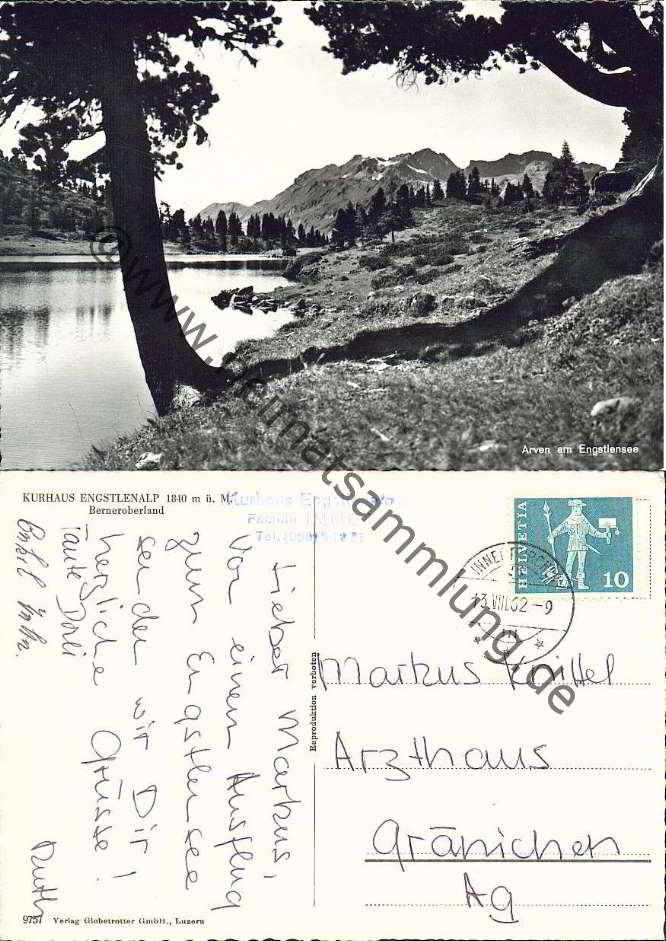 Arven am Engstlensee
KURHAUS ENGSTLENALP 1840 m ü. M.
Berneroberland
Kurhaus Engstlenalp
Familie IMMER
Lieber Markus,
Von einem Ausflug
zum Engstlensee
senden wir Dir
herzliche Grüsse!
Tante Dorli
Ruth
Reproduktion verboten
HELVETIA
10
Markus Knittel
Arzthaus
Gränichen
Ag
9757 Verlag Globetrotter GmbH., Luzern
© www.heimatsammlung.de